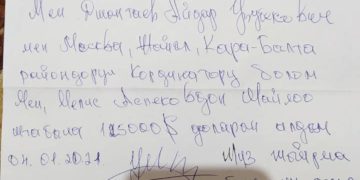 Мен Джантаев Айдар Урускевич
мен Москва, Жайыл, Кара-Балта
райондорун Кординатору болом
Мен, Мелис Апековдон Шайлоо
жабана 125000$ доларан алдым
04.01.2021 Муз жайрма